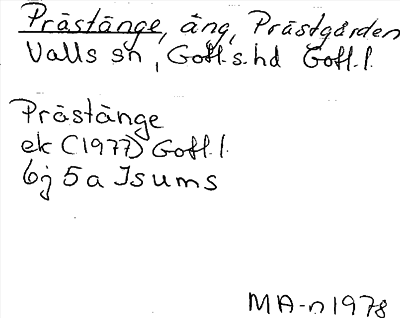 Prästänge, äng, Prästgården
Valls sn, Gotl.s.hd Gotl.l.
Prästänge
ek (1977) Gotl.l.
6j 5a Isums
MA-n 1978